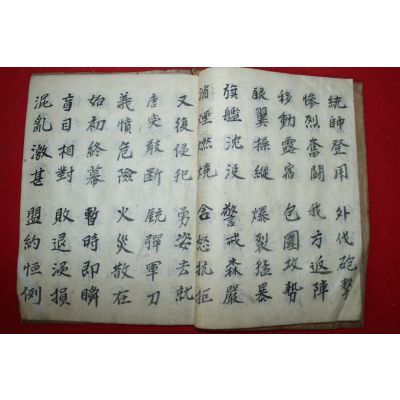 統帥登用 外伐砲擊
慘烈奮鬪 我方返陣
移動露宿 包圍攻勢
銀翼操縱 爆裂猛暴
旗艦沈沒 警戒森嚴
消煙燃燒 含怒抗拒
又復侵犯 勇姿去就
唐突敢斷 銃彈軍刀
義憤危險 火災散在
始初終幕 暫時即瞬
盲目相對 敗退浸損
混亂激甚 盟約恒例